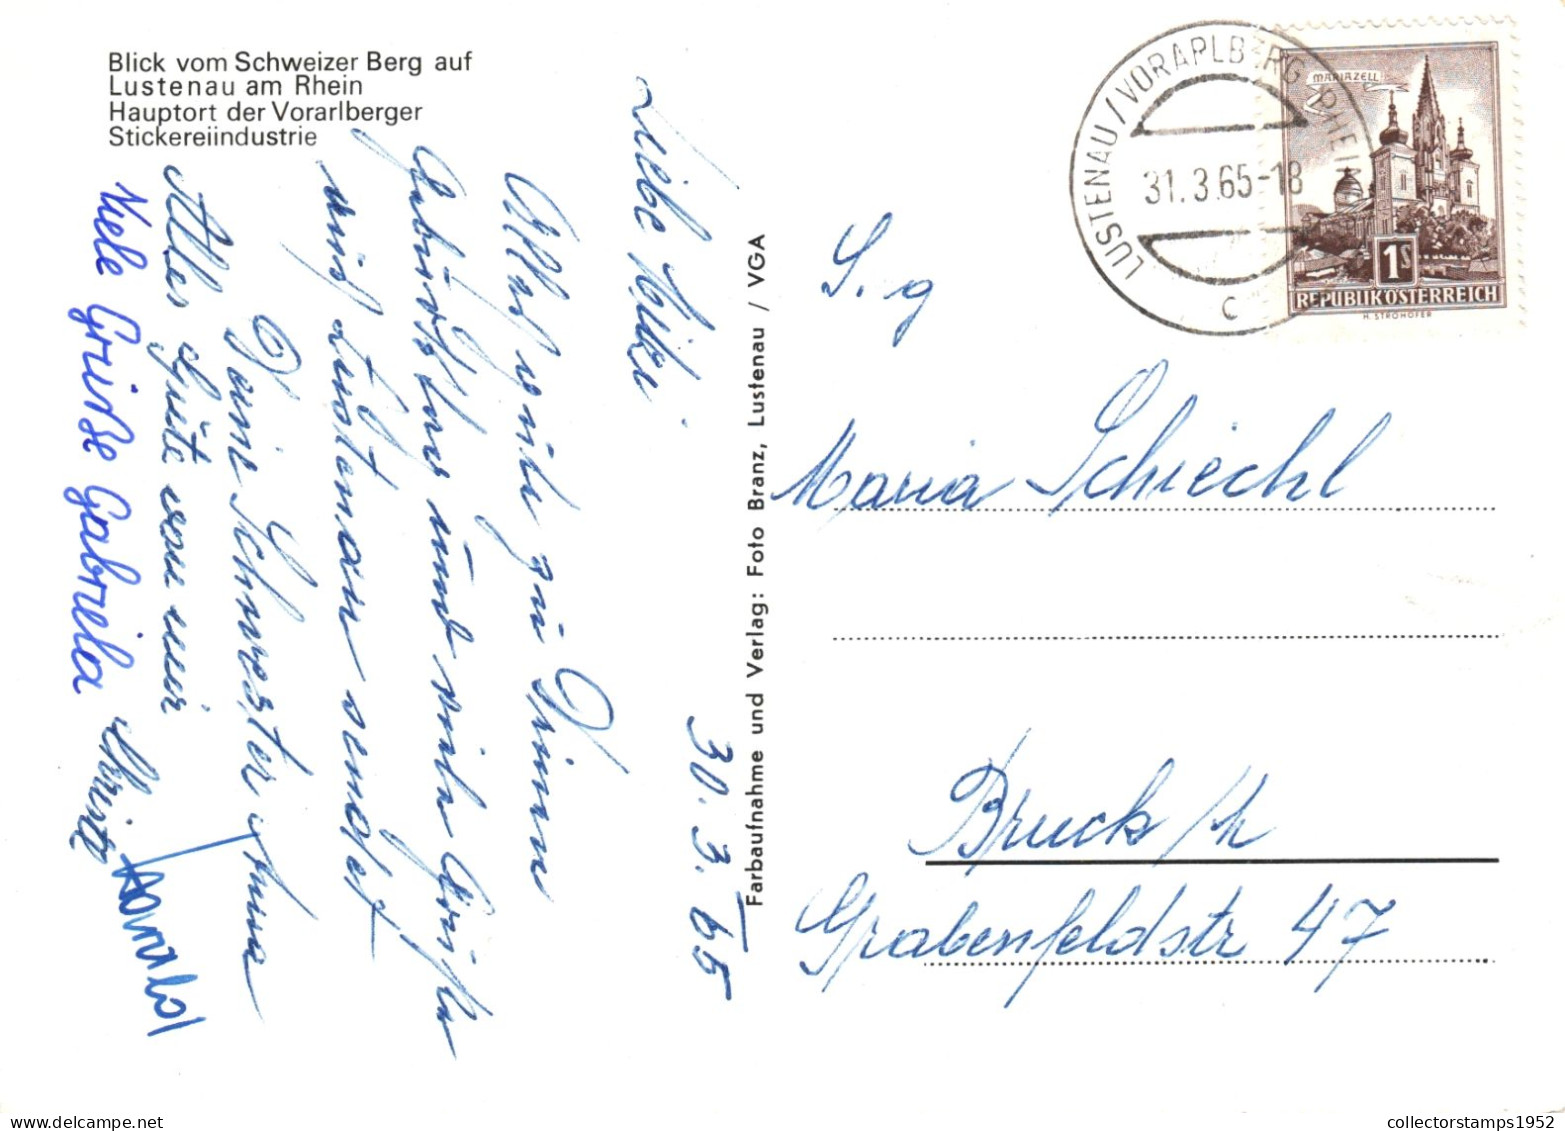 Blick vom Schweizer Berg auf
Lustenau am Rhein
Hauptort der Vorarlberger
Stickereiindustrie
30. 3. 65
Liebe
Alles gute zu Deinem
Geburtstag und viele Grüße
aus Lustenau sendet
Deine Schwester Anna
Alles Gute von mir
Christa
Viele Grüße Gabriela
Farbaufnahme und Verlag: Foto Branz, Lustenau / VGA
LUSTENAU / VORARLBERG RHEIN
31. 3. 65-18
c
MARIAZELL
1S
REPUBLIK ÖSTERREICH
H. STROHOFER
S. g
Maria Schiechl
Bruck/
Grabenfeldstr 47
collectorstamps1952